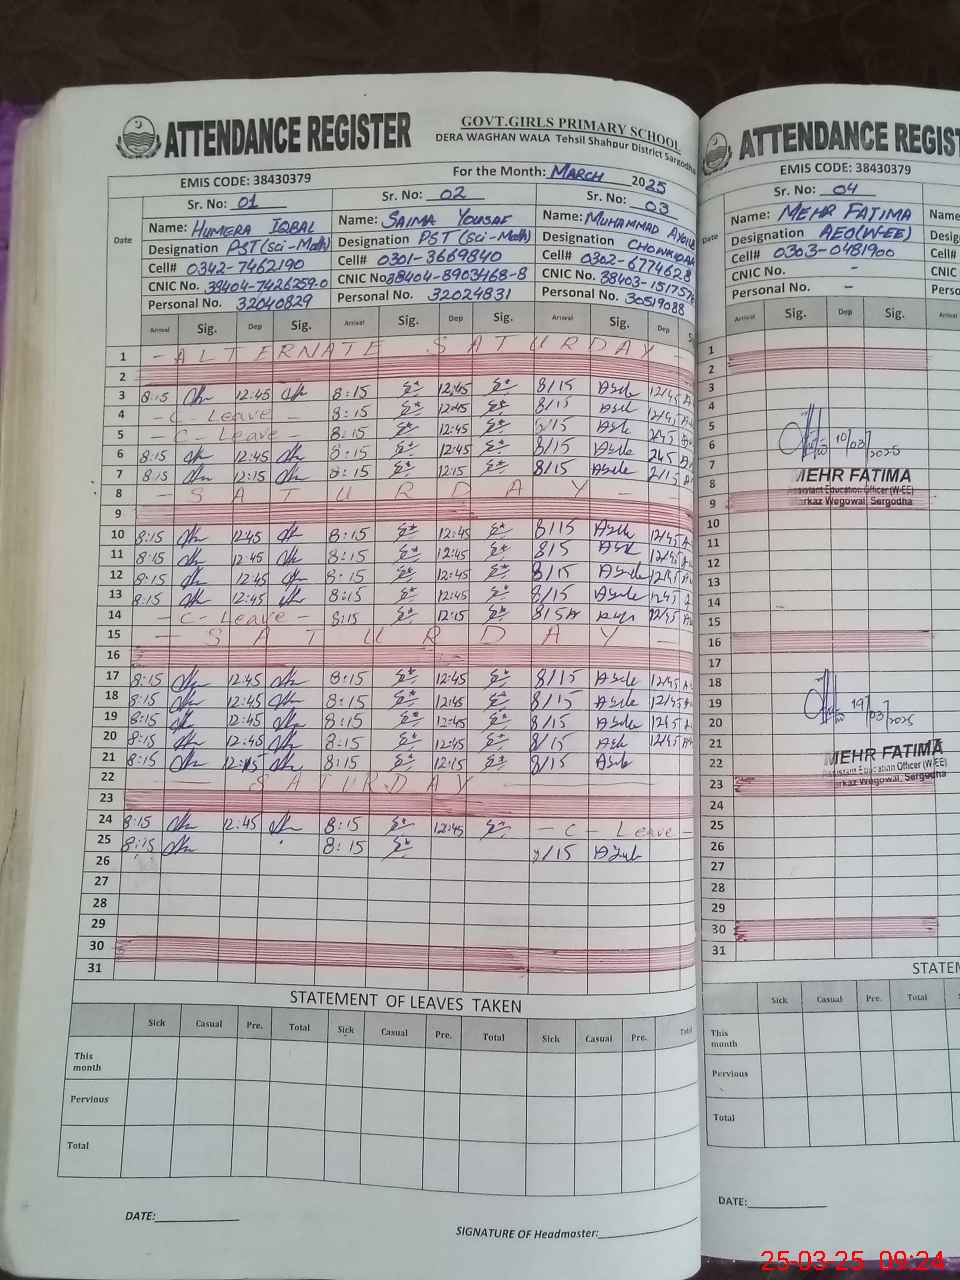 ATTENDANCE REGISTER
GOVT.GIRLS PRIMARY SCHOOL
DERA WAGHAN WALA Tehsil Shahpur District Sargodha
EMIS CODE: 38430379
For the Month: MARCH 2025
Sr. No: 01 Sr. No: 02 Sr. No: 03
Date
Name: HUMERA IQBAL Name: SAIMA YOUSAF Name: MUHAMMAD
Designation PST (Sci-Math) Designation PST (Sci-Math) Designation
Cell# 0342-7462190 Cell# 0301-3669840 Cell# 0302-6774628
CNIC No. 38404-7426259-0 CNIC No 38404-8903468-8 CNIC No. 38403-
Personal No. 32040829 Personal No. 32024831 Personal No. 30519088
Arrival Sig. Dep Sig. Arrival Sig. Dep Sig. Arrival Sig. Dep
1 - ALTERNATE SATURDAY -
2
3 8:15 12:45 8:15 12:45 8/15 12/45
4 - C - Leave - 8:15 12:45 8/15 12/45
5 - C - Leave - 8:15 12:45
6 8:15 12:45 8:15 12:45 8/15
7 8:15 12:15 8:15 12:15 8/15
8 - SATURDAY -
9
10 8:15 12:45 8:15 12:45 8/15 12/45
11 8:15 12:45 8:15 12:45 8/15 12/45
12 8:15 12:45 8:15 12:45 8/15
13 8:15 12:45 8:15 12:45 8/15
14 - C - Leave - 8:15 12:15
15 - SATURDAY -
16
17 8:15 12:45 8:15 12:45 8/15 12/45
18 8:15 12:45 8:15 12:45 8/15 12/45
19 8:15 12:45 8:15 12:45 8/15
20 8:15 12:45 8:15 12:45 8/15 12/45
21 8:15 12:15 8:15 12:15 8/15
22 - SATURDAY
23
24 8:15 12:45 8:15 12:45 - C - Leave -
25 8:15 8:15 8/15
26
27
28
29
30
31
STATEMENT OF LEAVES TAKEN
Sick Casual Pre. Total Sick Casual Pre. Total Sick Casual Pre. Total
This
month
Pervious
Total
DATE:
SIGNATURE OF Headmaster:
ATTENDANCE
EMIS CODE: 38430379
Sr. No: 04
Date
Name: MEHR FATIMA Name
Designation AEO(W-EE)
Cell# 0303-0481900 Cell#
CNIC No. - CNIC
Personal No. -
Arrival Sig. Dep Sig. Arrival
1
2
3
4
5
6 10/03/2025
7
MEHR FATIMA
8 Assistant Education Officer (W-EE)
9 Markaz Wegowal, Sargodha
10
11
12
13
14
15
16
17
18
19 19/03/2025
20
21
MEHR FATIMA
22 Assistant Education Officer (W-EE)
23 Markaz Wegowal, Sargodha
24
25
26
27
28
29
30
31
Sick Casual Pre. Total
This
month
Pervious
Total
DATE:
25-03-25 09:24